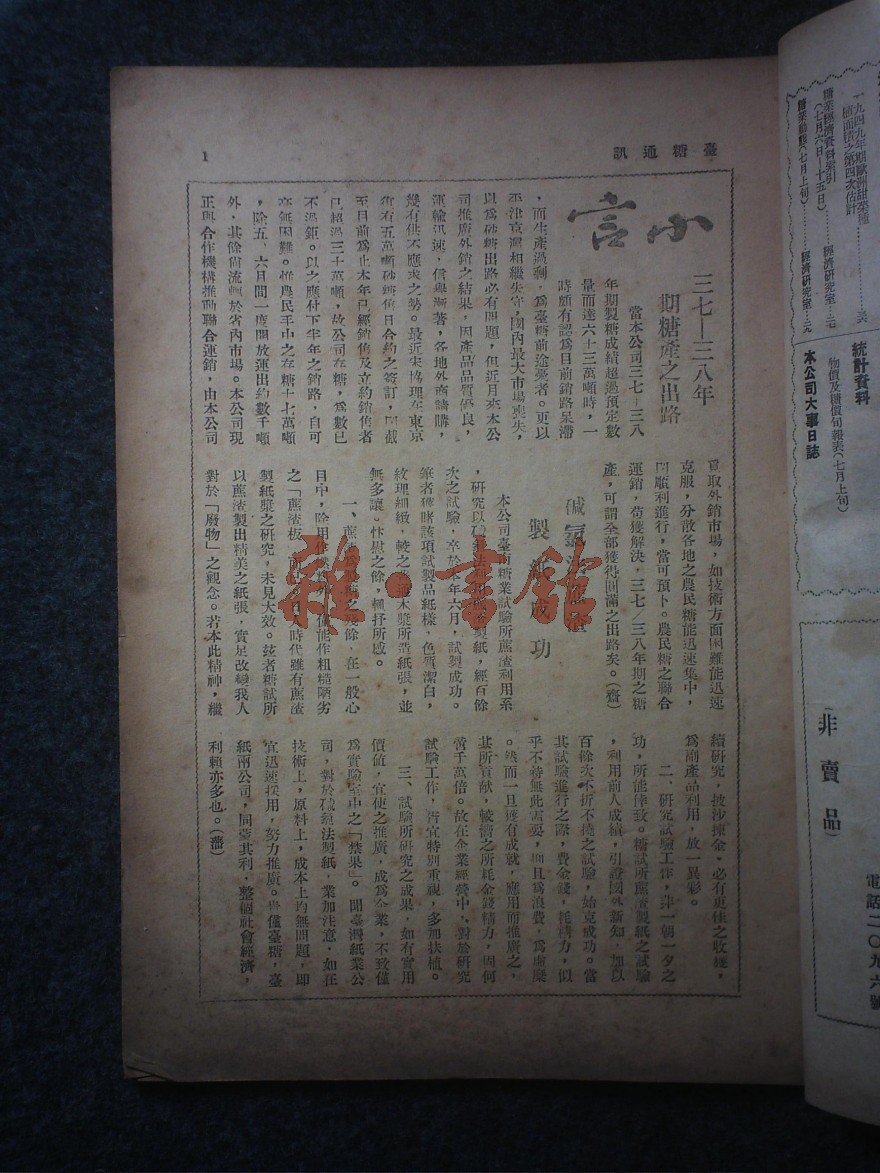 臺糖通訊
1
小言
三七—三八年
期糖產之出路
當本公司三七·三八
年期製糖成績超過預定數
量而達六十三萬噸時，一
時頗有認為目前銷路呆滯
，而生產過剩，為臺糖前途憂者。更以
平津京滬相繼失守，國內最大市場喪失，
以為砂糖出路必有問題，但近月來本公
司推廣外銷之結果，因產品品質優良，
運輸迅速，信譽漸著，各地外商請購，
幾有供不應求之勢。最近宋協理在東京
復有五萬噸砂糖售日合約之簽訂，因截
至目前為止本年已經銷售及立約銷售者
已超過三十萬噸，故公司存糖，為數已
不過鉅。以之應付下半年之銷路，自可
幸無困難。惟農民手中之存糖十七萬噸
，除五、六月間一度開放運出約數千噸
外，其餘尚流轉於省內市場。本公司現
正與合作機構推動聯合運銷，由本公司
覓取外銷市場，如技術方面困難能迅速
克服，分散各地之農民糖能迅速集中，
因順利進行，當可預卜。農民糖之聯合
運銷，苟獲解決，三七·三八年期之糖
產，可謂全部獲得圓滿之出路矣。（齋）
鹹氣法蔗渣
製紙成功
本公司臺南糖業試驗所蔗渣利用系
，研究以鹹氣法利用蔗渣製紙，經百餘
次之試驗，卒於本年六月，試製成功。
筆者獲睹該項試製品紙樣，色質潔白，
紋理細緻，較之普通木漿所造紙張，並
無多讓。忻慰之餘，輒抒所感。
一、蔗渣為製糖之殘餘，在一般心
目中，除用作燃料外，僅能作粗糙陋劣
之「蔗渣板」而已。日人時代雖有蔗渣
製紙漿之研究，未見大效。茲者糖試所
以蔗渣製出精美之紙張，實足改變我人
對於「廢物」之觀念。若本此精神，繼
續研究，披沙揀金，必有更佳之收穫，
為副產品利用，放一異彩。
二、研究試驗工作，非一朝一夕之
功，所能倖致。糖試所蔗渣製紙之試驗
，利用前人成績，引證國外新知，加以
百餘次不折不撓之試驗，始克成功。當
其試驗進行之際，費金錢，耗精力，似
乎不特無此需要，而且為浪費，為虛糜
。然而一旦獲有成就，應用而推廣之，
其所貢獻，較諸之所耗金錢精力，固何
啻千萬倍。故在企業經營中，對於研究
試驗工作，皆宜特別重視，多加扶植。
三、試驗所研究之成果，如有實用
價值，宜使之推廣，成為企業，不致僅
為實驗室中之「禁果」。聞臺灣紙業公
司，對於鹹氣法製紙，業加注意，如在
技術上，原料上，成本上均無問題，即
宜迅速採用，努力推廣。豈僅臺糖，臺
紙兩公司，同蒙其利，整個社會經濟，
利賴亦多也。（藩）
雜·書館
一九四九年期歐洲甜菜種
植面積之第四次估計
糖業經濟資料索引
（七月六日—十五日）……經濟研究室…
糖業動態（七月上旬）……經濟研究室…
統計資料
物價及糖價旬報表（七月上旬）
本公司大事日誌
（非賣品）
電話二〇九六號